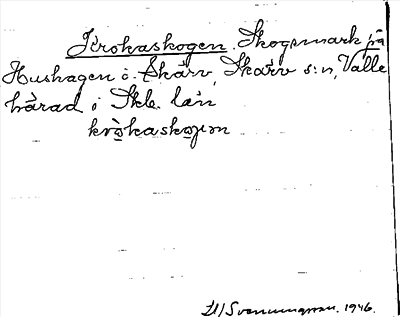 Krokaskogen. Skogsmark på
Hushagen i Skärv, Skärv s:n, Valle
härad i Skb. län
krò̱kasko̱jєn
H/ Svenningsson. 1946.